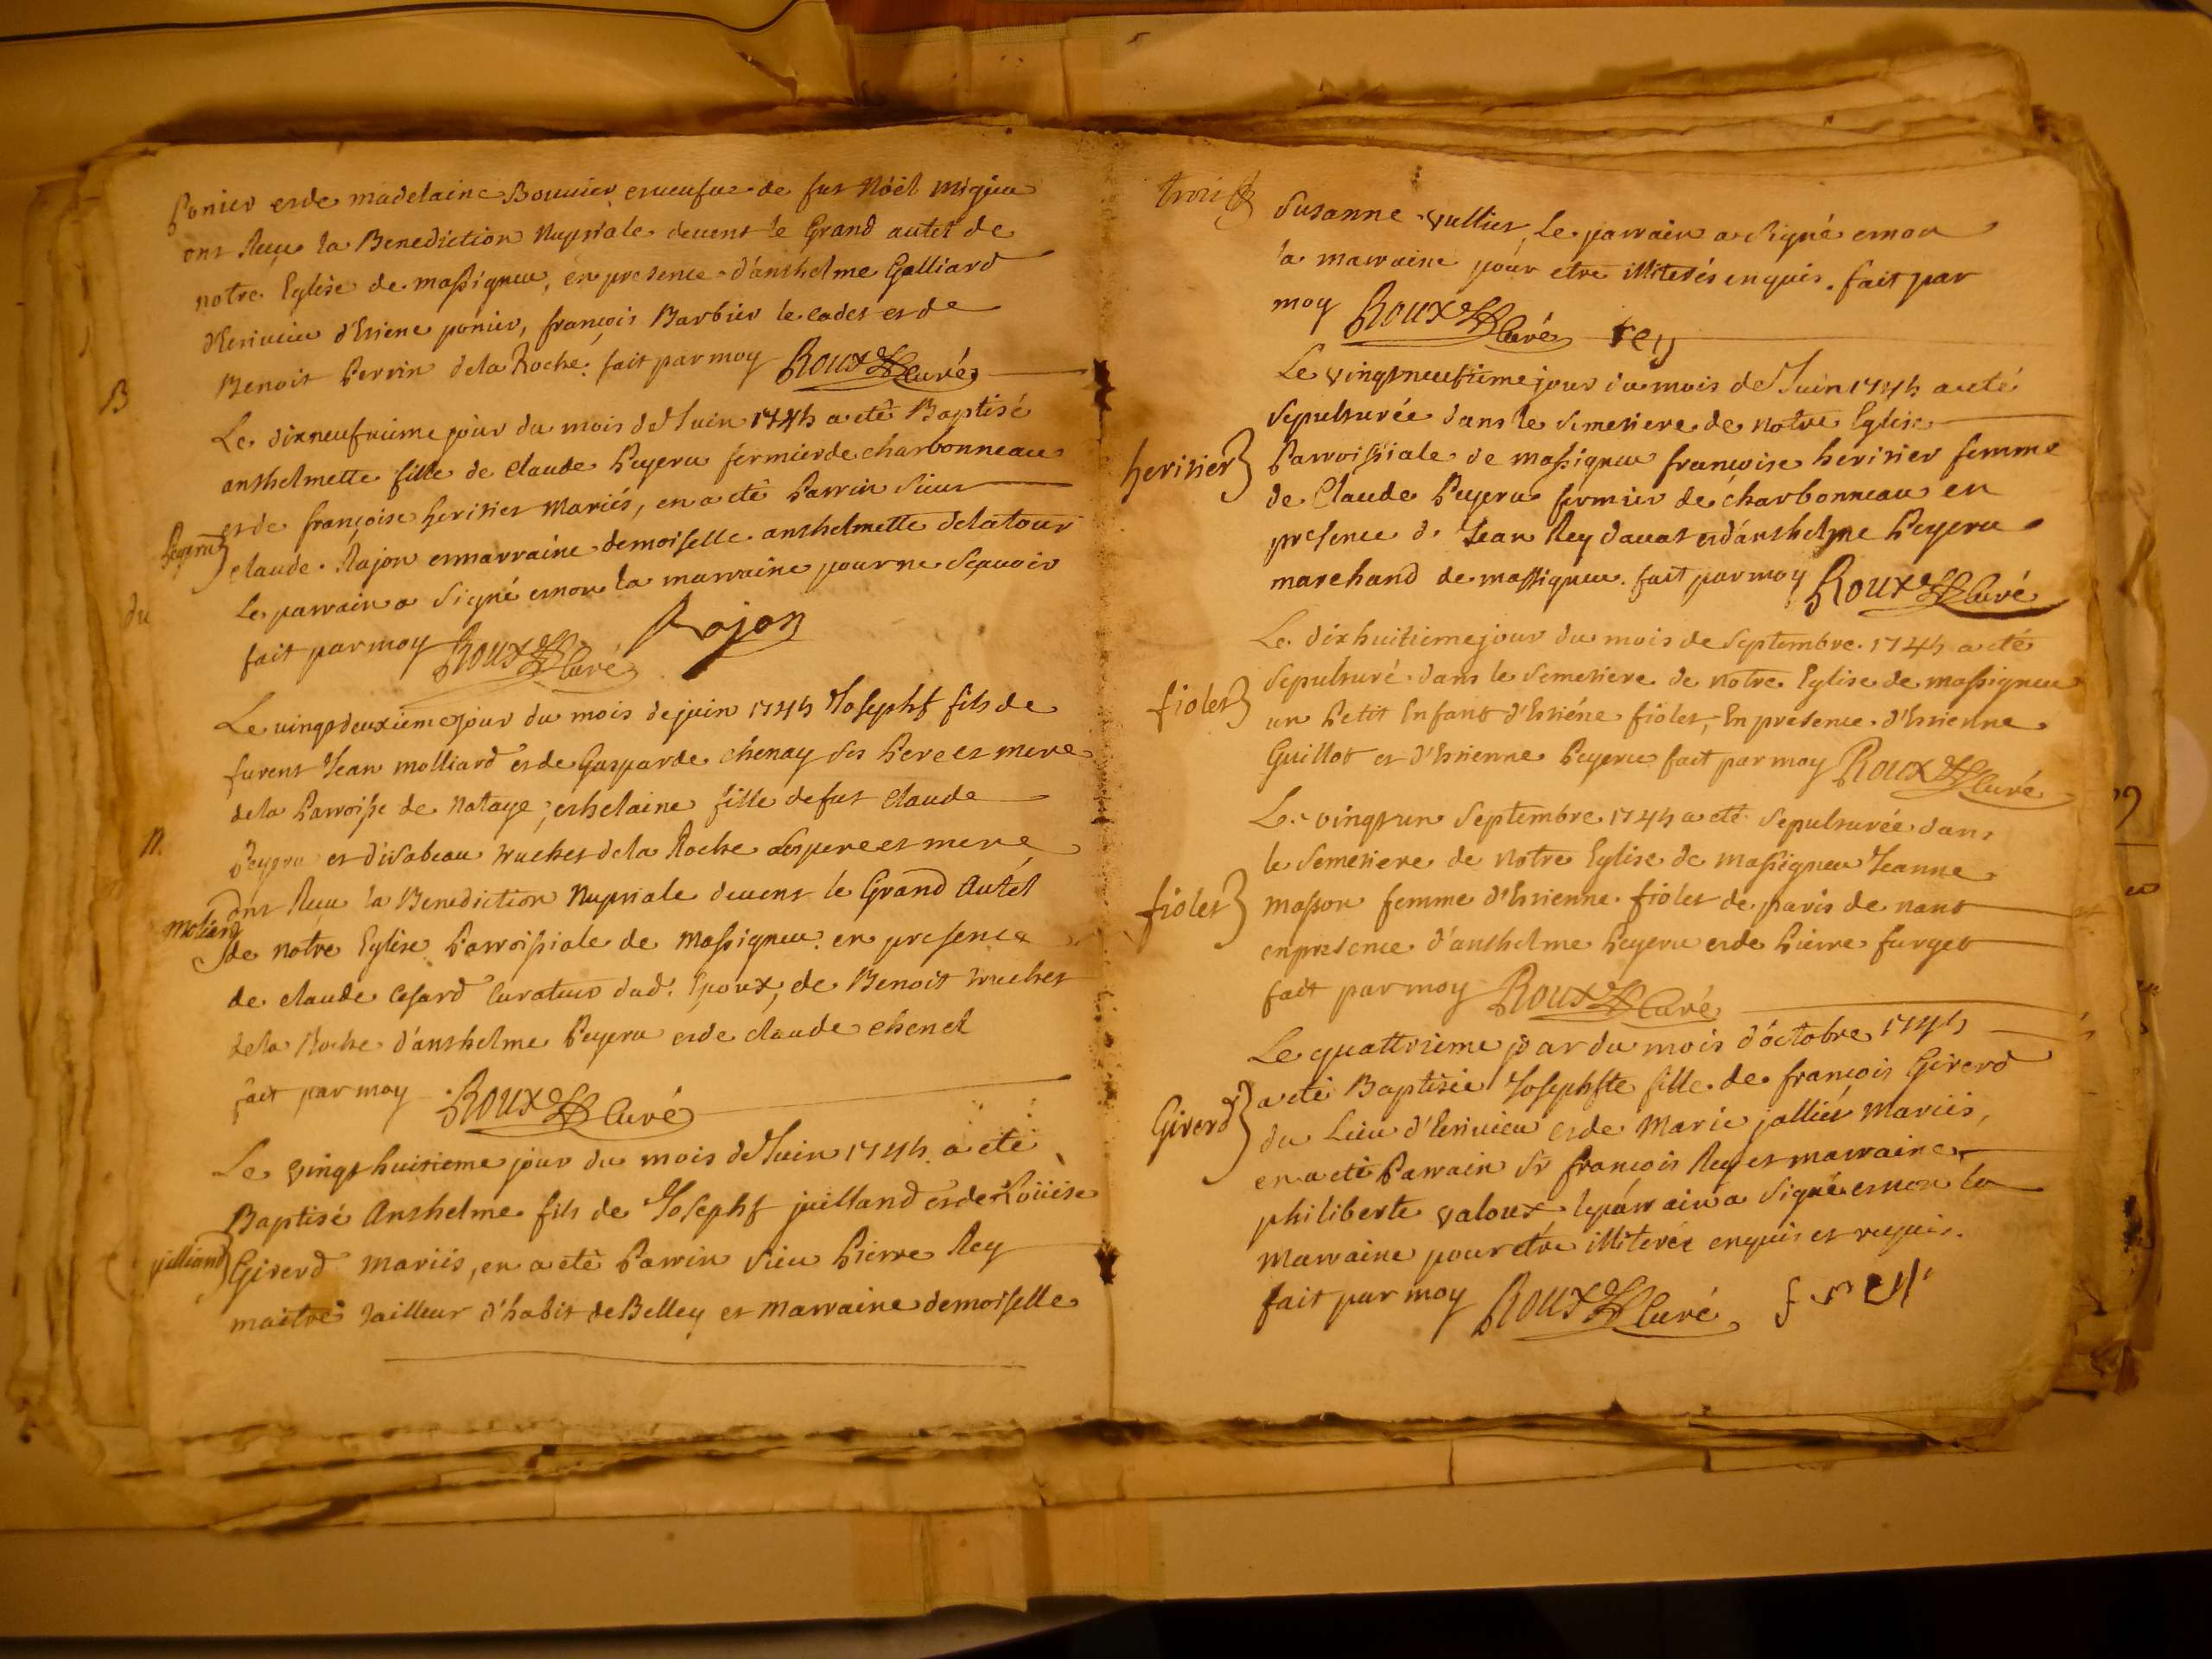 Ponier et de madelaine Bouvier et veufve de fut Nöèl migieu
ont Recu la Benediction Nuptiale devent le Grand autel de
notre Eglise de massigneu, en presence d'anthelme Galliard
d'Etiene ponier, françois Barbier le cadet et de
Benoit Perrin dela Roche. fait par moy Roux Curé
B
Le dixneufvieme jour du mois de Juin 1745 a eté Baptisé
anthelmette fille de Claude Peyeru fermier de charbonneau
et de françoise heritier Mariés, en a eté Parrin Sieur
Peyeru
claude Rajon et marraine demoiselle anthelmette delatour
du
Le parrain a Signé et non la marraine pour ne Sçavoir
fait par moy Roux Curé Rajon
Le vingtdeuxieme jour du mois de juin 1745 Josephf fils de
furent Jean molliard et de Gasparde chenay Ses Pere et mere
dela Parroisse de Nataye; et helaine fille de fut Claude
N.
Peyeru et d'isabeau truchet dela Roche Ses pere et mere
ont Recu la Benediction Nuptiale devent le Grand Autel
Moliard
de Notre Eglise Parroissiale de Massigneu en presence
de claude Cesard Curateur dud. Epoux, de Benoit truchet
dela Roche d'anthelme Peyeru et de claude chenel
fait par moy Roux Curé
Le vingt huitieme jour du mois de Juin 1745 a eté
Baptisé Anthelme fils de Josephf juilland et de Loüise
juilliand
Girerd Mariés, en a eté Parrin Sieu Pierre Rey
maitre tailleur d'habit de Belley et Marraine demoiselle
Susanne vullier, Le parrain a Signé et non
la marraine pour etre illiterés enquis. fait par
moy Roux Curé rey
Le vingtneufvieme jour du mois de Juin 1745 a eté
Sepulturée dans le Simetiere de Notre Eglise
heritier
Parroissiale de massigneu françoise heritier femme
de Claude Peyeru fermier de charbonneau en
presence de Jean Rey davat et d'anthelme Peyeru
marchand de massigneu. fait par moy Roux Curé
Le dixhuitieme jour du mois de Septembre 1745 a eté
Sepulturé dans le Semetiere de Notre Eglise de massigneu
fiolet
un Petit Enfant d'Etiéne fiolet, En presence d'Etienne
Guillot et d'Etienne Peyeru fait par moy Roux Curé
Le vingt un Septembre 1745 a eté Sepulturée dans
le Semetiere de Notre Eglise de massigneu Jeanne
fiolet
masson femme d'Etienne fiolet de paris de nant
en presence d'anthelme Peyeru et de Pierre furget
fait par moy Roux Curé
Le quattrieme jour du mois d'octobre 1745
a eté Baptisée Josephte fille de françois Girerd
Girerd
du Lieu d'Ecrivieu et de Marie jallier Mariés,
en a eté Parrain Sr françois Rey et marraine
philiberte valoux, le parrain a Signé et non la
Marraine pour etre illiterée enquis et requis.
fait par moy Roux Curé f rey